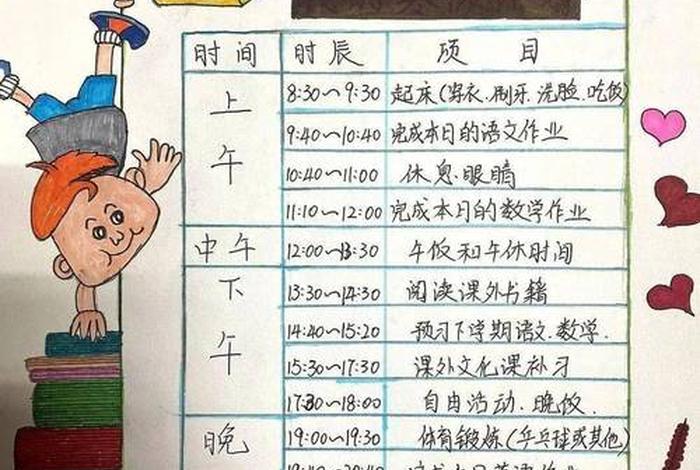 时间 时辰 项目
上午
8:30~9:30 起床(穿衣.刷牙.洗脸.吃饭)
9:40~10:40 完成本日的语文作业
10:40~11:00 休息.眼睛
11:10~12:00 完成本日的数学作业
中午 12:00~13:30 午饭和午休时间
下午
13:30~14:30 阅读课外书籍
14:40~15:20 预习下学期语文.数学.
15:30~17:30 课外文化课补习
17:30~18:00 自由活动.晚饭.
晚 19:00~19:30 体育锻炼(乒乓球或其他)